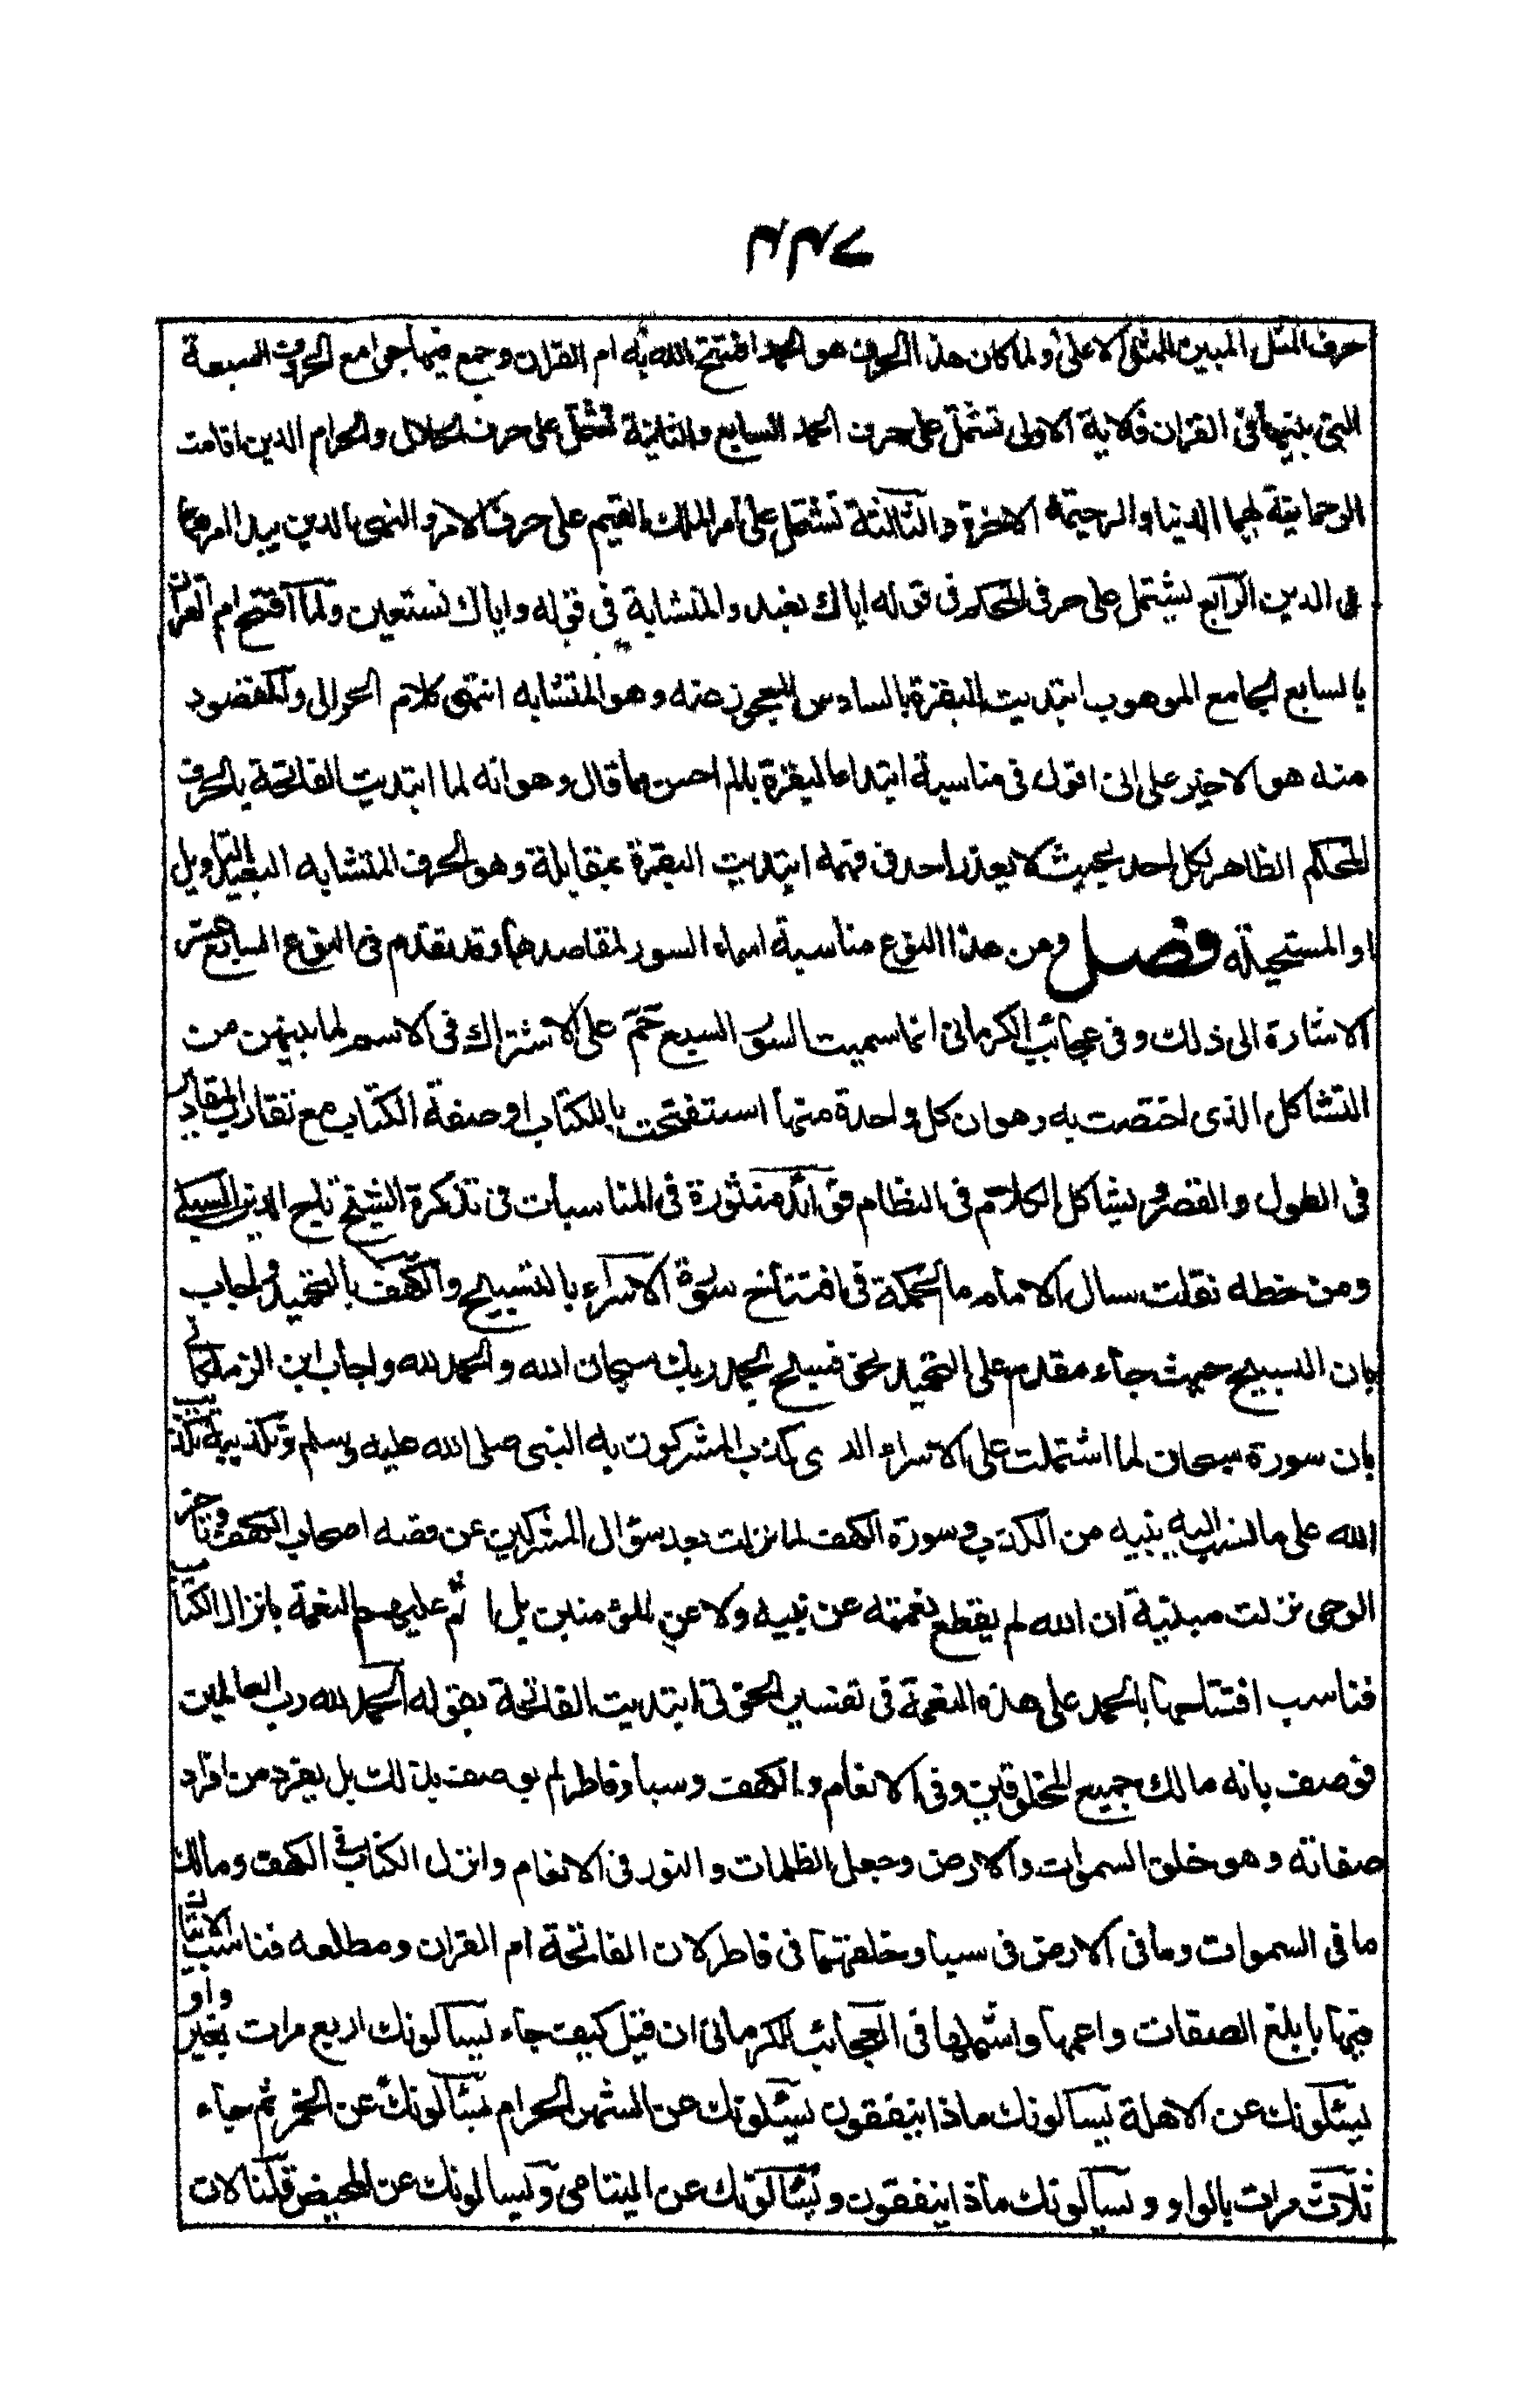 حرف المثل المبين المثل الاعلى ولما كان هذا الحرف هو الحمد افتتح الله به ام القران وجمع فيها جوامع الحروف السبعة
التى بثها فى القران فالاية الاولى تشتمل على حرف الحمد السابع والثانية تشتمل على حرف الحلال والحرام الدين اقامت
الرحمانية بهما الدنيا والرحيمة الاخرة والثالثة تشتمل على امر الملك القيم على حرف الامر والنهى بالدين يبدا امرهما
فى الدين الرابع يشتمل على حرفى المحكم فى قوله اياك نعبد والمتشابه فى قوله واياك نستعين ولما افتتح ام القران
بالسابع الجامع الموهوب ابتديت البقرة بالسادس المعجوز عنه وهو المتشابه انتهى كلام الحرالى والمقصود
منه هو الاخير على انى اقول فى مناسبة ابتداء البقرة بالم احسن مما قال وهو انه لما ابتديت الفاتحة بالحرف
المحكم الظاهر لكل احد بحيث لا يعذر احد فى فهمه ابتديت البقرة بمقابلة وهو الحرف المتشابه البعيد التاويل
او المستحيلة فصل ومن هذا النوع مناسبة اسماء السور لمقاصدها وقد تقدم فى النوع السابع عشر
الاشارة الى ذلك وفى عجائب الكرمانى انما سميت السور السبع حم على الاشتراك فى الاسم لما بينهن من
التشاكل الذى اختصت به وهو ان كل واحدة منها استفتحت بالكتاب او صفة الكتاب مع تقارب المقادير
فى الطول والقصر وتشاكل الكلام فى النظام فوائد منثورة فى المناسبات فى تذكرة الشيخ تاج الدين السبكى
ومن خطه نقلت سال الامام ما الحكمة فى افتتاح سورة الاسراء بالتسبيح والكهف بالتحميد واجاب
بان التسبيح حيث جاء مقدم على التحميد نحو فسبح بحمد ربك سبحان الله والحمد لله واجاب ابن الزملكانى
بان سورة سبحان لما اشتملت على الاسراء الذى كذب المشركون به النبى صلى الله عليه وسلم وتكذيبه تكذيب
الله على ما نسب اليه نبيه من الكذب وسورة الكهف لما نزلت بعد سؤال المشركين عن قصه اصحاب الكهف وتاخر
الوحى نزلت مبينة ان الله لم يقطع نعمته عن نبيه ولا عن المؤمنين بل اتم عليهم النعمة بانزال الكتاب
فناسب افتتاحها بالحمد على هذه النعمة فى تفسير الحوفى ابتديت الفاتحة بقوله الحمد لله رب العالمين
فوصف بانه مالك جميع المخلوقين وفى الانعام والكهف وسبا وفاطر لم يوصف بذلك بل بفرد من افراد
صفاته وهو خلق السموات والارض وجعل الظلمات والنور فى الانعام وانزل الكتاب فى الكهف ومالك
ما فى السموات وما فى الارض فى سبا وخلقهما فى فاطر لان الفاتحة ام القران ومطلعه فناسب الاتيان
فيها بابلغ الصفات واعمها واشملها فى العجائب للكرمانى ان قيل كيف جاء يسالونك اربع مرات بغير واو
يسئلونك عن الاهلة يسالونك ماذا ينفقون يسئلونك عن الشهر الحرام يسئالونك عن الخمر ثم جاء
ثلاث مرات بالواو ويسالونك ماذا ينفقون ويسئالونك عن اليتامى ويسالونك عن المحيض قلنا لان